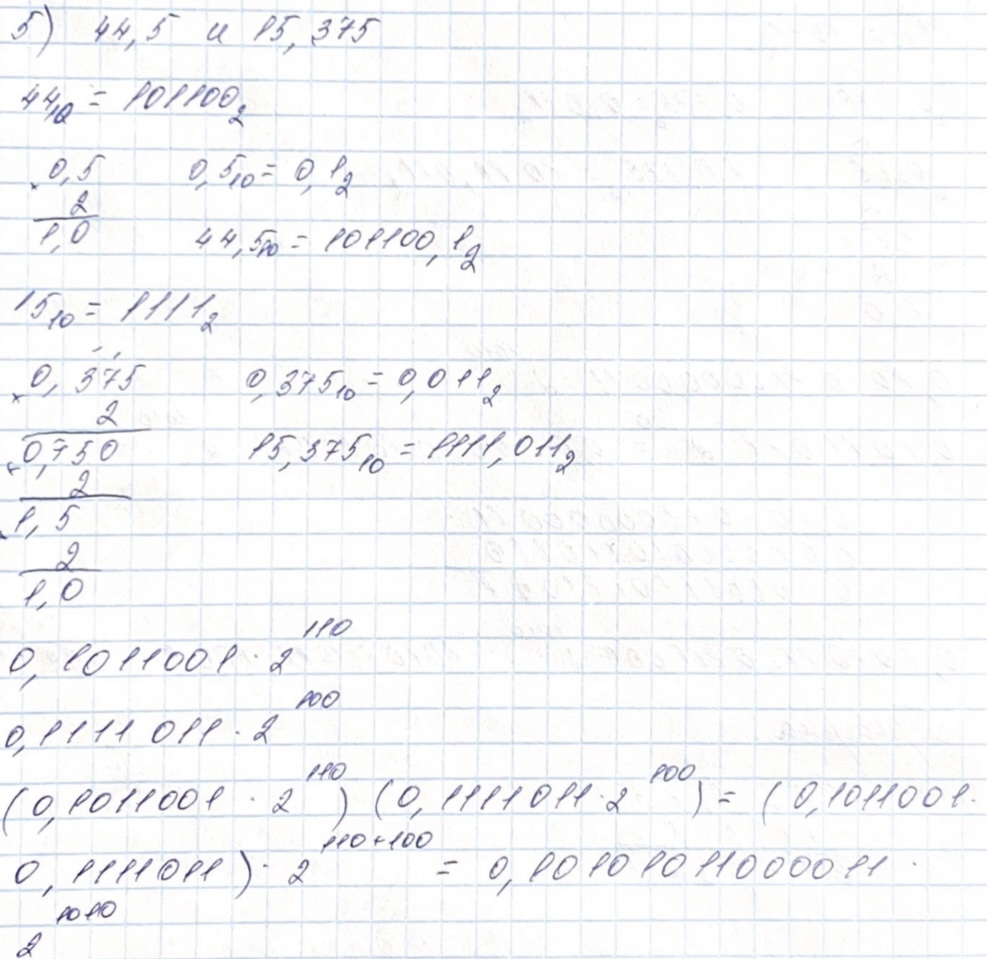 5) 44,5 и 15,375
44₁₀ = 101100₂
× 0,5   0,5₁₀ = 0,1₂
2
1,0   44,5₁₀ = 101100,1₂
15₁₀ = 1111₂
× 0,375   0,375₁₀ = 0,011₂
2
× 0,750   15,375₁₀ = 1111,011₂
2
× 1,5
2
1,0
0,1011001 · 2¹¹⁰
0,1111011 · 2¹⁰⁰
(0,1011001 · 2¹¹⁰) (0,1111011 · 2¹⁰⁰) = (0,1011001 ·
0,1111011) · 2¹¹⁰⁺¹⁰⁰ = 0,10101011000011 ·
2¹⁰¹⁰